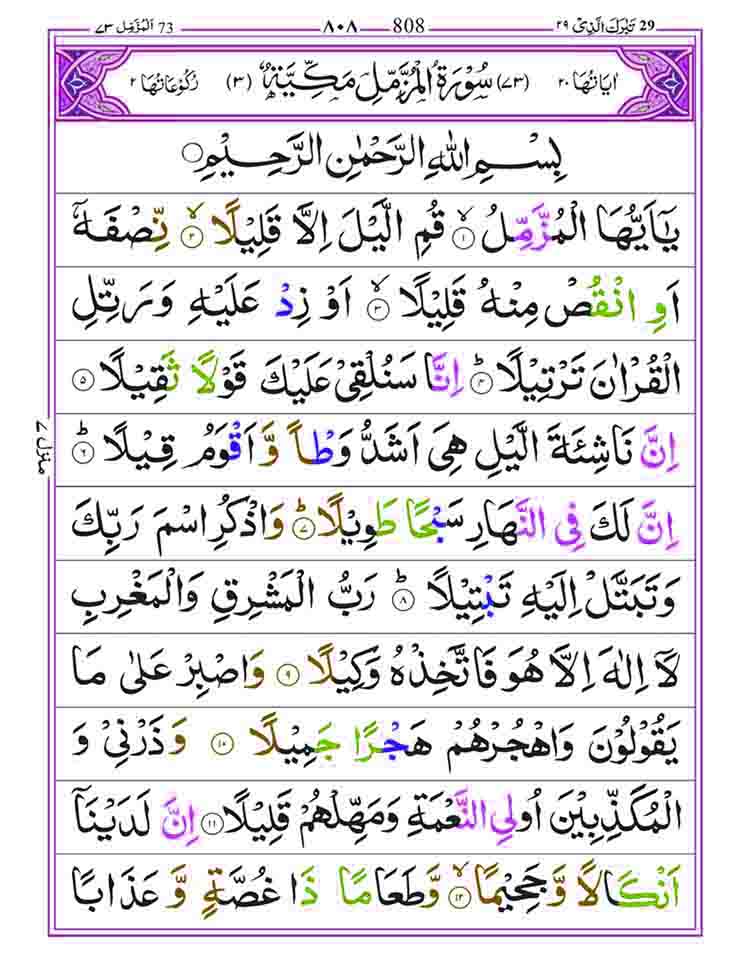 29 تَبٰرَكَ الَّذِىْ ٢٩
808 ٨٠٨
73 اَلْمُزَّمِّل ٧٣
اٰيَاتُهَا ٢٠ (٧٣) سُوْرَةُ الْمُزَّمِّلِ مَكِّيَّةٌ (٣) رُكُوْعَاتُهَا ٢
بِسْمِ اللّٰهِ الرَّحْمٰنِ الرَّحِيْمِ ۝
يٰۤاَيُّهَا الْمُزَّمِّلُ ۙ‏﴿۱﴾ قُمِ الَّيْلَ اِلَّا قَلِيْلًا ۙ‏﴿۲﴾ نِّصْفَهٗۤ
اَوِ انْقُصْ مِنْهُ قَلِيْلًا ۙ‏﴿۳﴾ اَوْ زِدْ عَلَيْهِ وَرَتِّلِ
الْقُرْاٰنَ تَرْتِيْلًا ؕ‏﴿۴﴾ اِنَّا سَنُلْقِىْ عَلَيْكَ قَوْلًا ثَقِيْلًا ﴿۵﴾
اِنَّ نَاشِئَةَ الَّيْلِ هِىَ اَشَدُّ وَطْاً وَّاَقْوَمُ قِيْلًا ؕ‏﴿۶﴾
اِنَّ لَكَ فِى النَّهَارِ سَبْحًا طَوِيْلًا ؕ‏﴿۷﴾ وَاذْكُرِ اسْمَ رَبِّكَ
وَتَبَتَّلْ اِلَيْهِ تَبْتِيْلًا ؕ‏﴿۸﴾ رَبُّ الْمَشْرِقِ وَالْمَغْرِبِ
لَاۤ اِلٰهَ اِلَّا هُوَ فَاتَّخِذْهُ وَكِيْلًا ﴿۹﴾ وَاصْبِرْ عَلٰى مَا
يَقُوْلُوْنَ وَاهْجُرْهُمْ هَجْرًا جَمِيْلًا ﴿۱۰﴾ وَذَرْنِىْ وَ
الْمُكَذِّبِيْنَ اُولِى النَّعْمَةِ وَمَهِّلْهُمْ قَلِيْلًا ﴿۱۱﴾ اِنَّ لَدَيْنَاۤ
اَنْكَالًا وَّجَحِيْمًا ۙ‏﴿۱۲﴾ وَّطَعَامًا ذَا غُصَّةٍ وَّعَذَابًا
منزل ٧